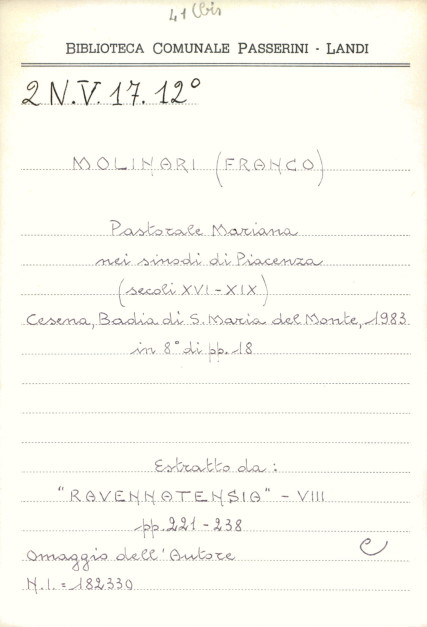 41 bis
BIBLIOTECA COMUNALE PASSERINI - LANDI
2 N.V. 17. 12°
MOLINARI (FRANCO)
Pastorale Mariana
nei sinodi di Piacenza
(secoli XVI - XIX)
Cesena, Badia di S. Maria del Monte, 1983
in 8° di pp. 18
Estratto da:
"RAVENNATENSIA" - VIII
pp. 221 - 238
Omaggio dell'Autore
N.I. = 182330